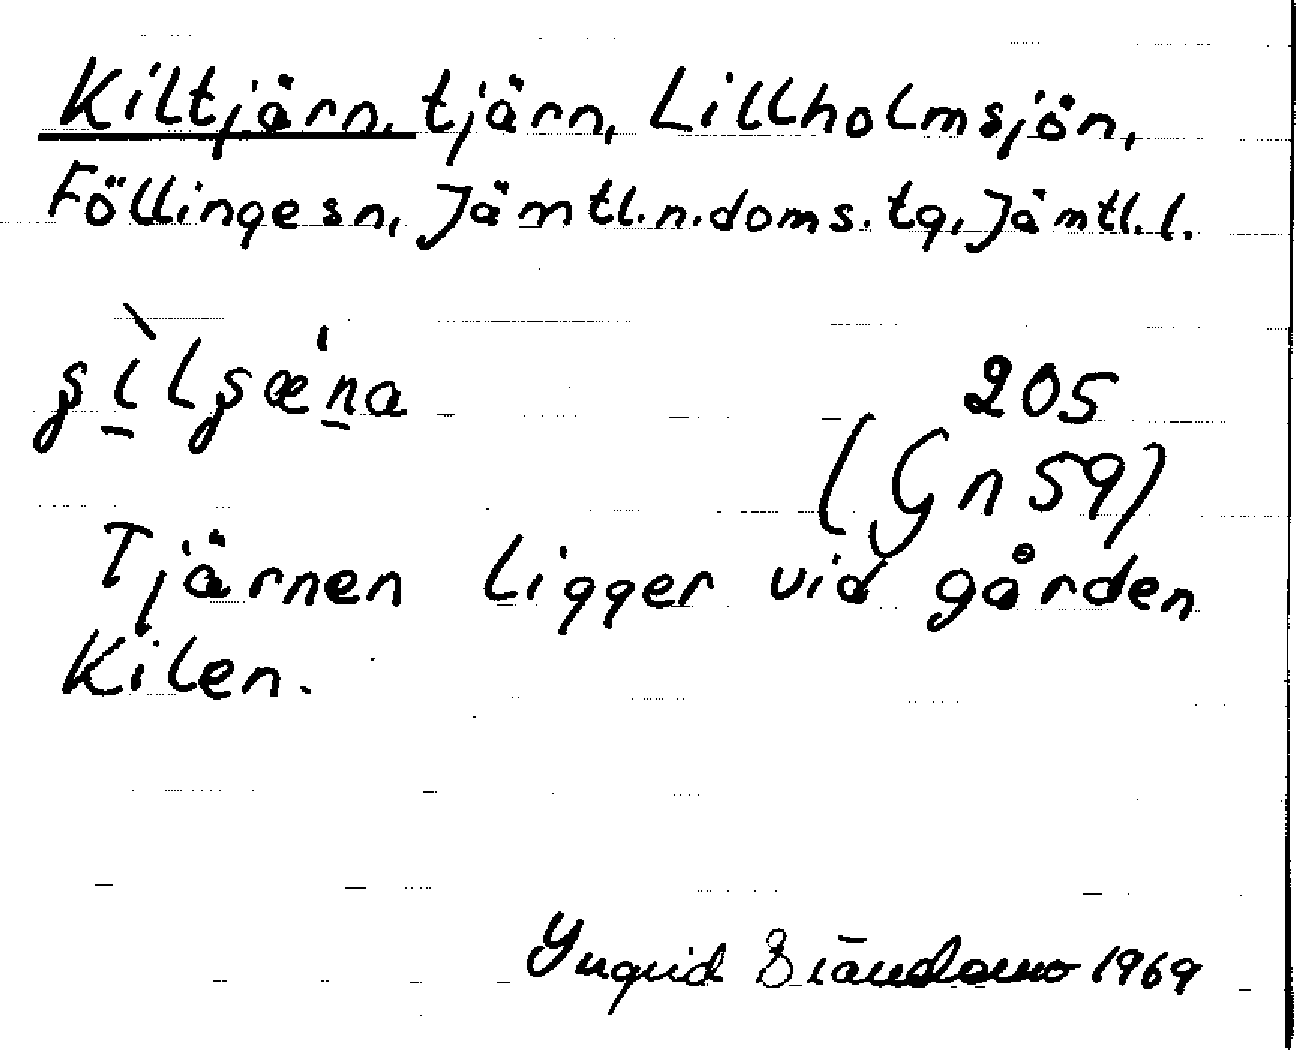 Kiltjärn, tjärn, Lillholmsjön,
Föllingesn, Jämtl.n.doms.tg, Jämtl.l.
205
(Gn 59)
Tjärnen ligger vid gården
Kilen.
Yngvid 1969